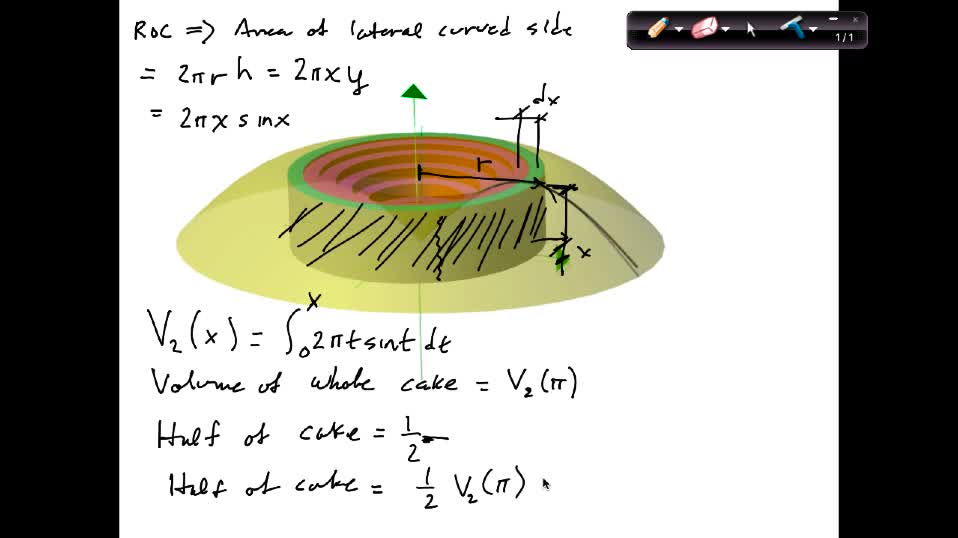 RoC => Area of lateral curved side
= 2πrh = 2πxy
= 2πx sinx
dx
r
x
V₂(x) = ∫₀ˣ 2πt sint dt
Volume of whole cake = V₂(π)
Half of cake = 1/2
Half of cake = 1/2 V₂(π)
1/1